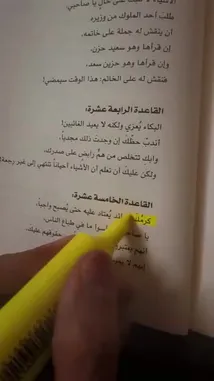 طلب أحد الملوك من وزيره
أن ينقش له جملة على خاتمه.
إن قرأها وهو سعيد حزن،
وإن قرأها وهو حزين سعد.
فنقش له على الخاتم: هذا الوقت سيمضي!
القاعدة الرابعة عشرة:
البكاء يُعزي ولكنه لا يعيد الغائبين!
اندبْ حظك إن وجدت ذلك مجدياً،
وابكِ لتتخلص من همٍّ رابض على صدرك،
ولكن عليك أن تعلم أن الأشياء أحياناً تنتهي إلى غير رجعة
القاعدة الخامسة عشرة:
قد يُعتاد عليه حتى يُصبح واجباً،
ما هي طباع الناس،